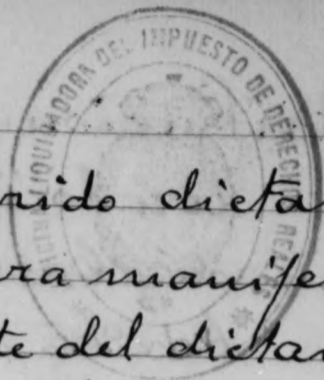 LIQUIDADORA DEL IMPUESTO DE DERECHOS REALES
rido dicta
ra manifes
te del dictam